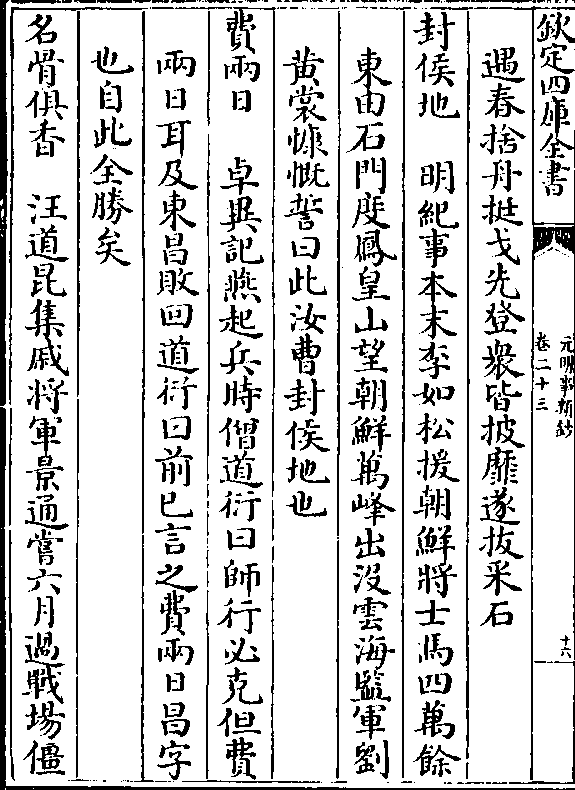 欽定四庫全書
元明事類鈔
卷二十三
十六
遇春捨舟挺戈先登衆皆披靡遂拔采石
封侯地　明紀事本末李如松援朝鮮將士馬四萬餘
東由石門度鳳皇山望朝鮮萬峰出没雲海監軍劉
黄裳慷慨誓曰此汝曹封侯地也
費兩日　卓異記燕起兵時僧道衍曰師行必克但費
兩日耳及東昌敗回道衍曰前已言之費兩日昌字
也自此全勝矣
名骨俱香　汪道昆集戚將軍景通嘗六月過戰場僵